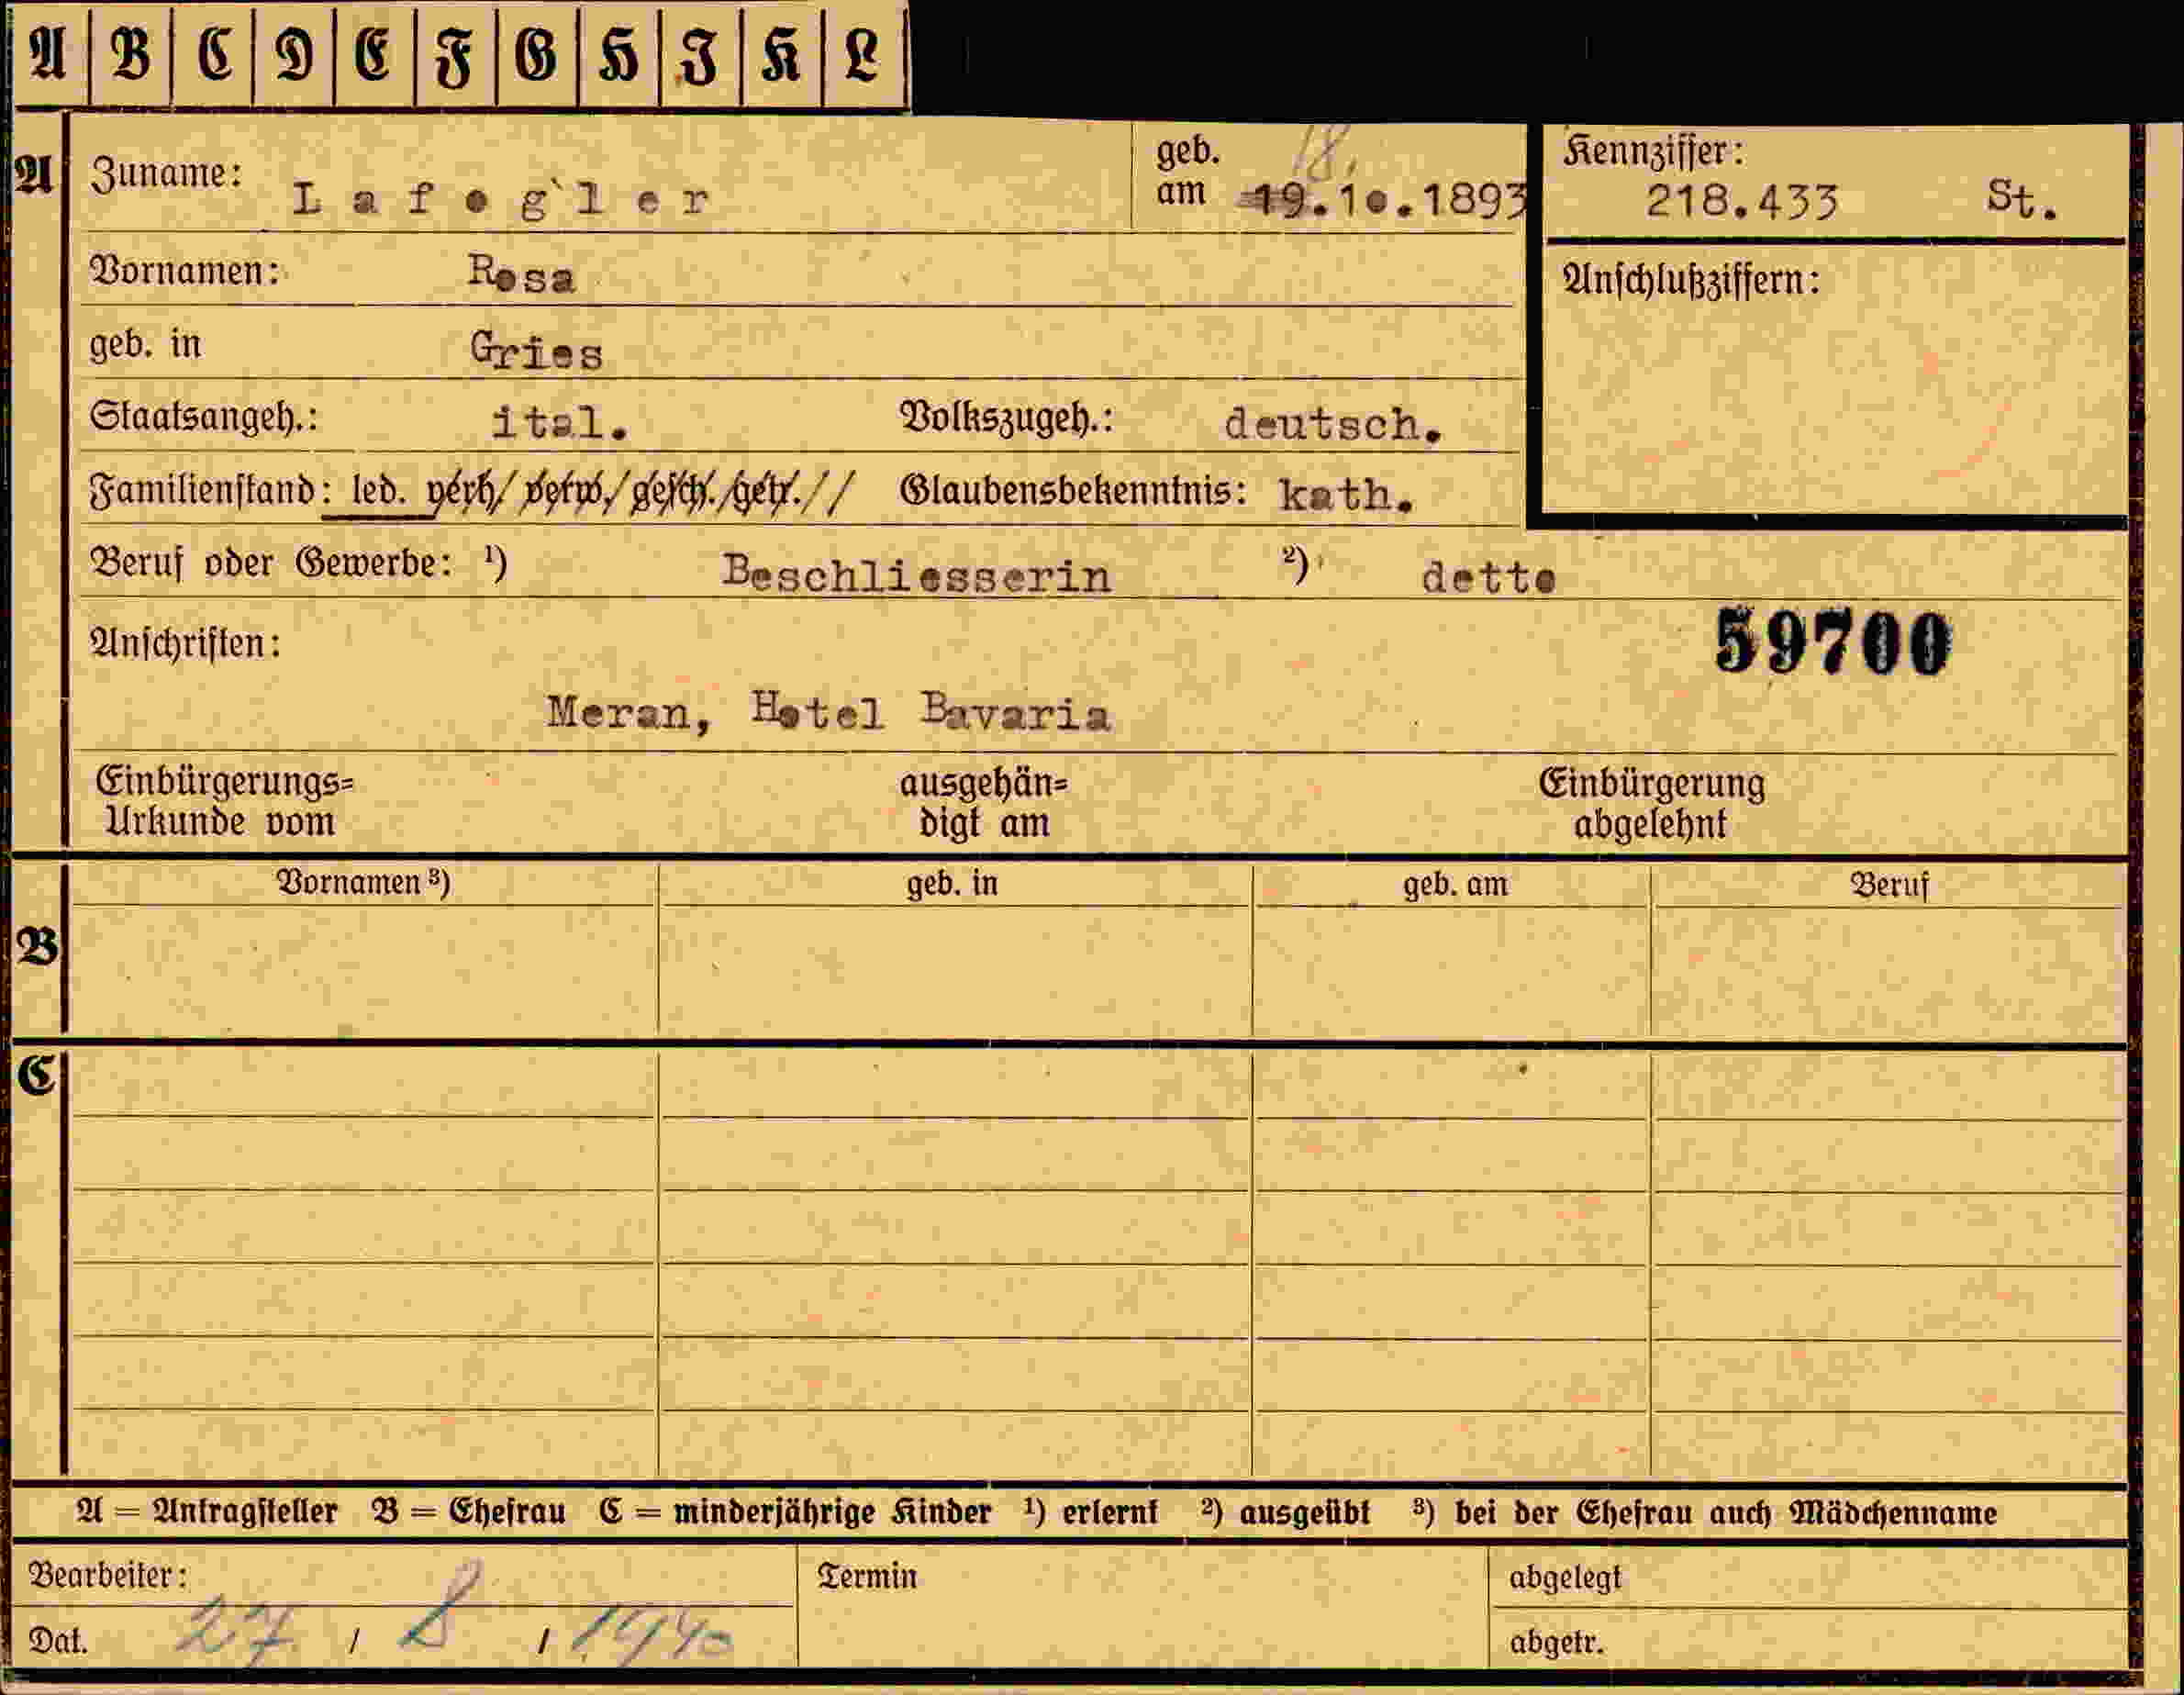 A B C D E F G H I K L
A Zuname: Lafogler geb. am 18. 19.10.1893 Kennziffer: 218.433 St.
Vornamen: Rosa Anschlußziffern:
geb. in Gries
Staatsangeh.: ital. Volkszugeh.: deutsch.
Familienstand: led. verh/ verw./gesch./getr.// Glaubensbekenntnis: kath.
Beruf oder Gewerbe: ¹) Beschliesserin ²) detto
Anschriften: 59700
Meran, Hotel Bavaria
Einbürgerungs= ausgehän= Einbürgerung
Urkunde vom digt am abgelehnt
Vornamen ³) geb. in geb. am Beruf
B
C
A = Antragsteller B = Ehefrau C = minderjährige Kinder ¹) erlernt ²) ausgeübt ³) bei der Ehefrau auch Mädchenname
Bearbeiter: Termin abgelegt
Dat. 27 / 8 / 1940 abgetr.